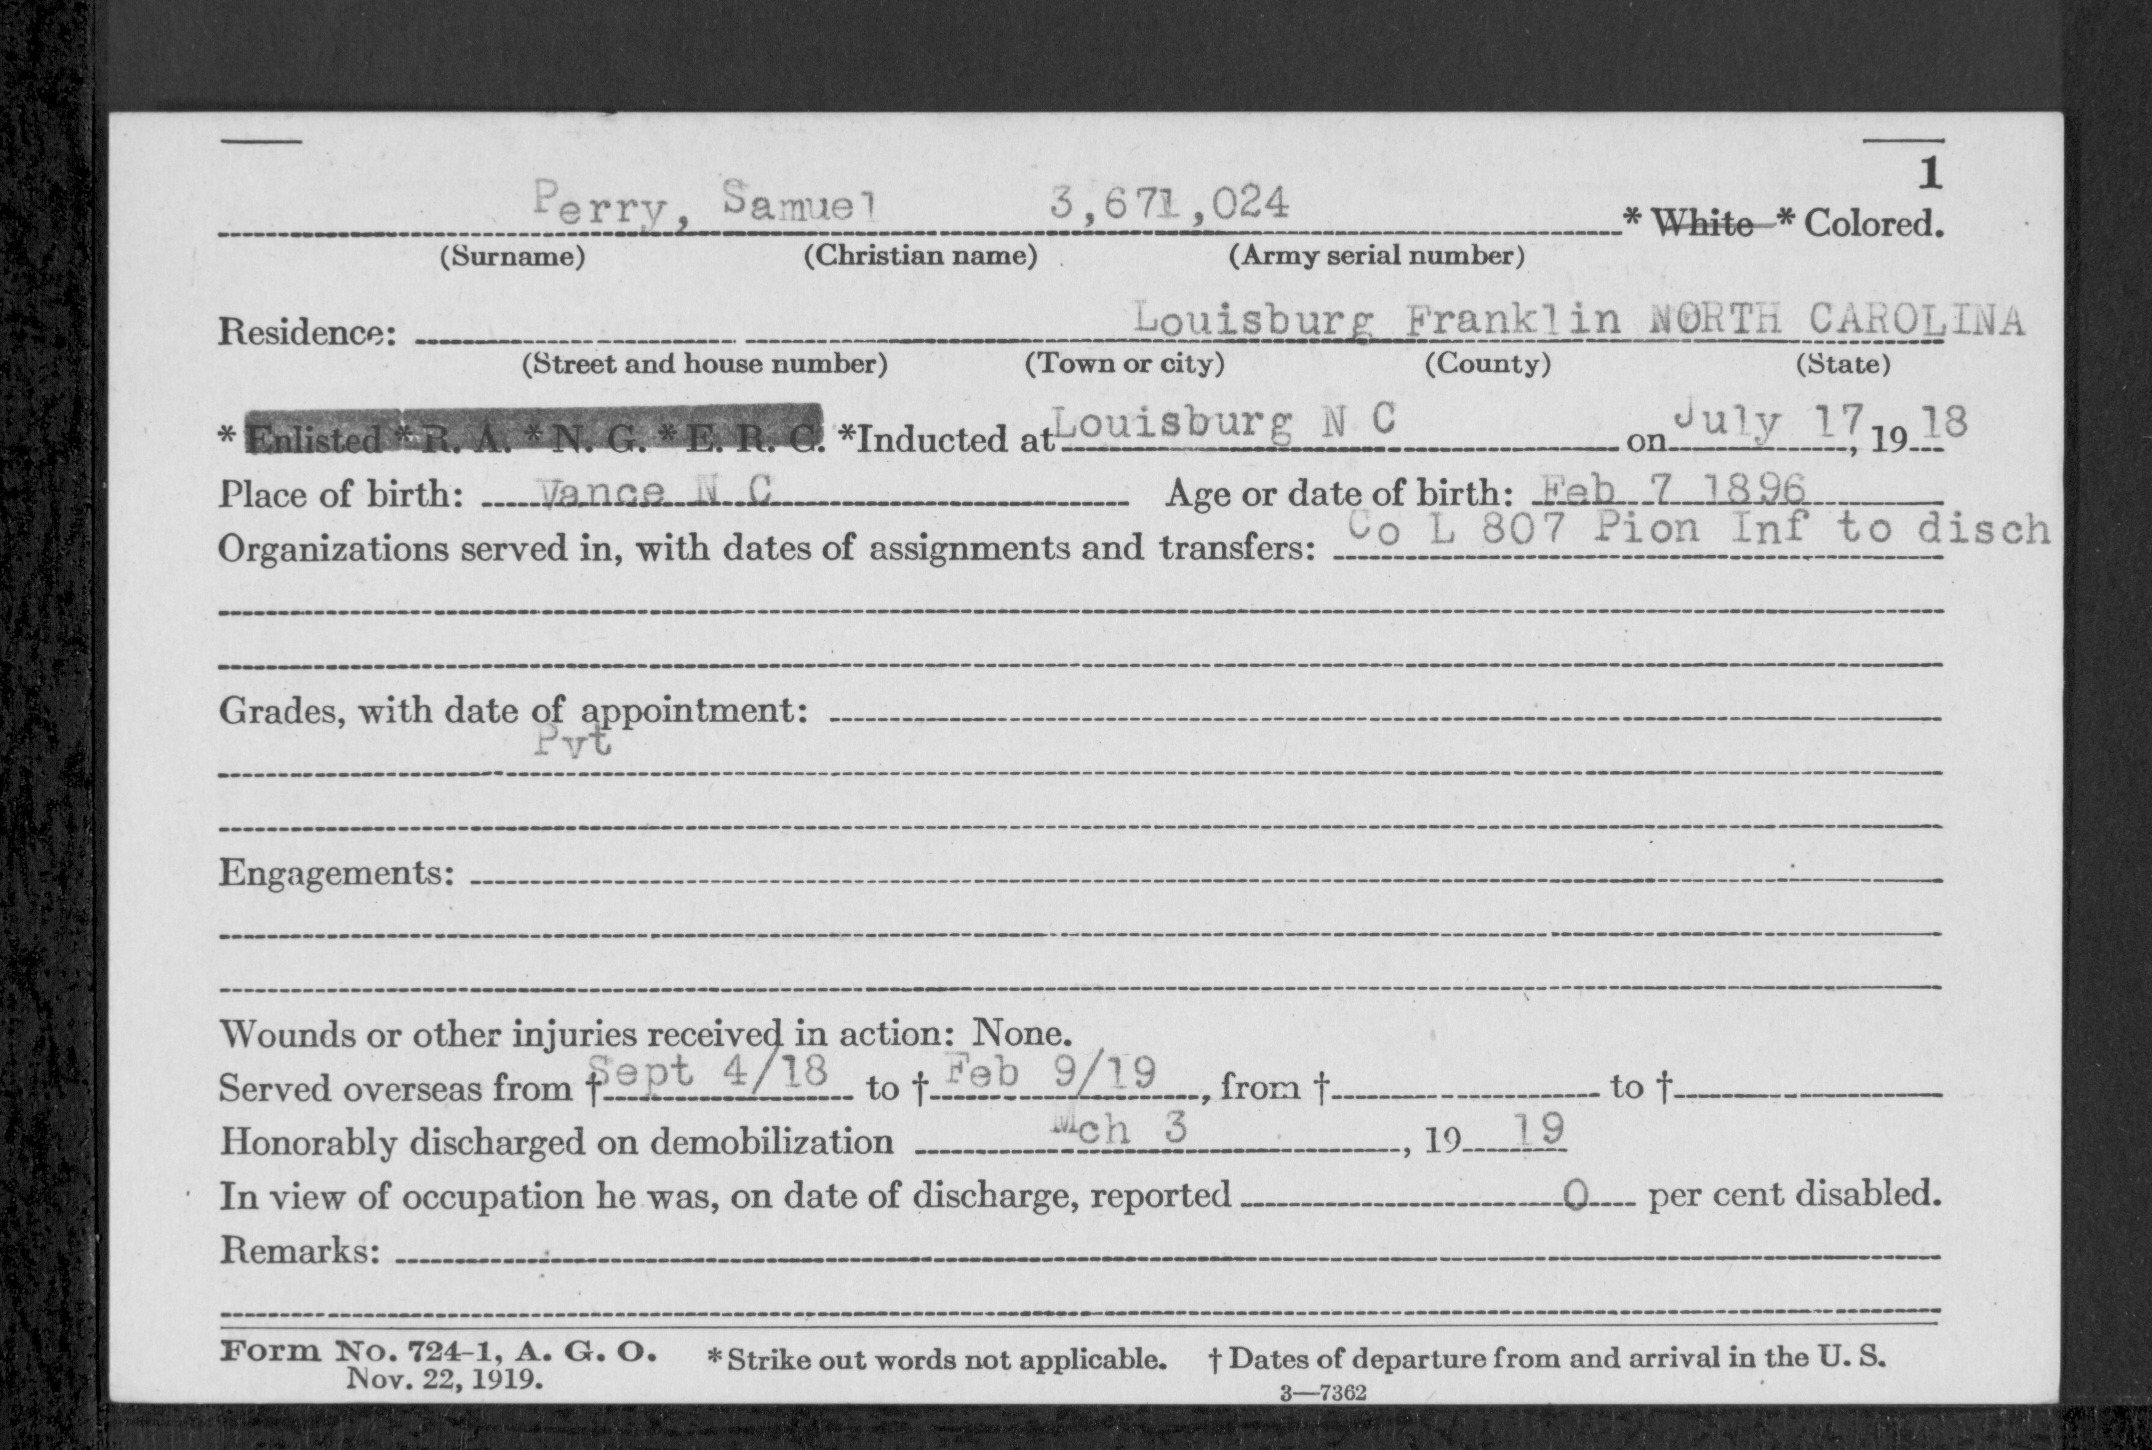 1
Perry, Samuel 3,671,024 * White * Colored.
(Surname) (Christian name) (Army serial number)
Louisburg Franklin NORTH CAROLINA
Residence:
(Street and house number) (Town or city) (County) (State)
* Enlisted * R. A. * N. G. * E. R. C. *Inducted at Louisburg N C on July 17, 19 18
Place of birth: Vance N C Age or date of birth: Feb 7 1896
Organizations served in, with dates of assignments and transfers: Co L 807 Pion Inf to disch
Grades, with date of appointment:
Pvt
Engagements:
Wounds or other injuries received in action: None.
Served overseas from † Sept 4/18 to † Feb 9/19, from † to †
Honorably discharged on demobilization Mch 3, 19 19
In view of occupation he was, on date of discharge, reported 0 per cent disabled.
Remarks:
Form No. 724-1, A. G. O. *Strike out words not applicable. † Dates of departure from and arrival in the U. S.
Nov. 22, 1919.
3—7362